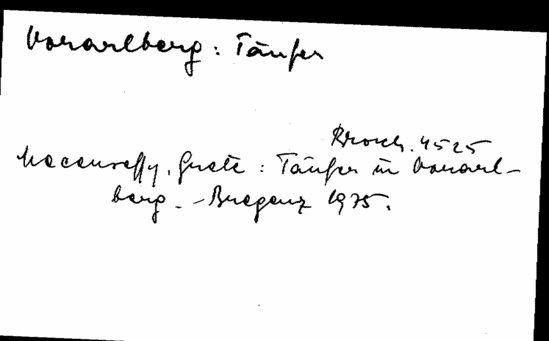 Vorarlberg: Täufer
Brosch. 4525
Mecenseffy, Grete: Täufer in Vorarl-
berg. - Bregenz 1975.